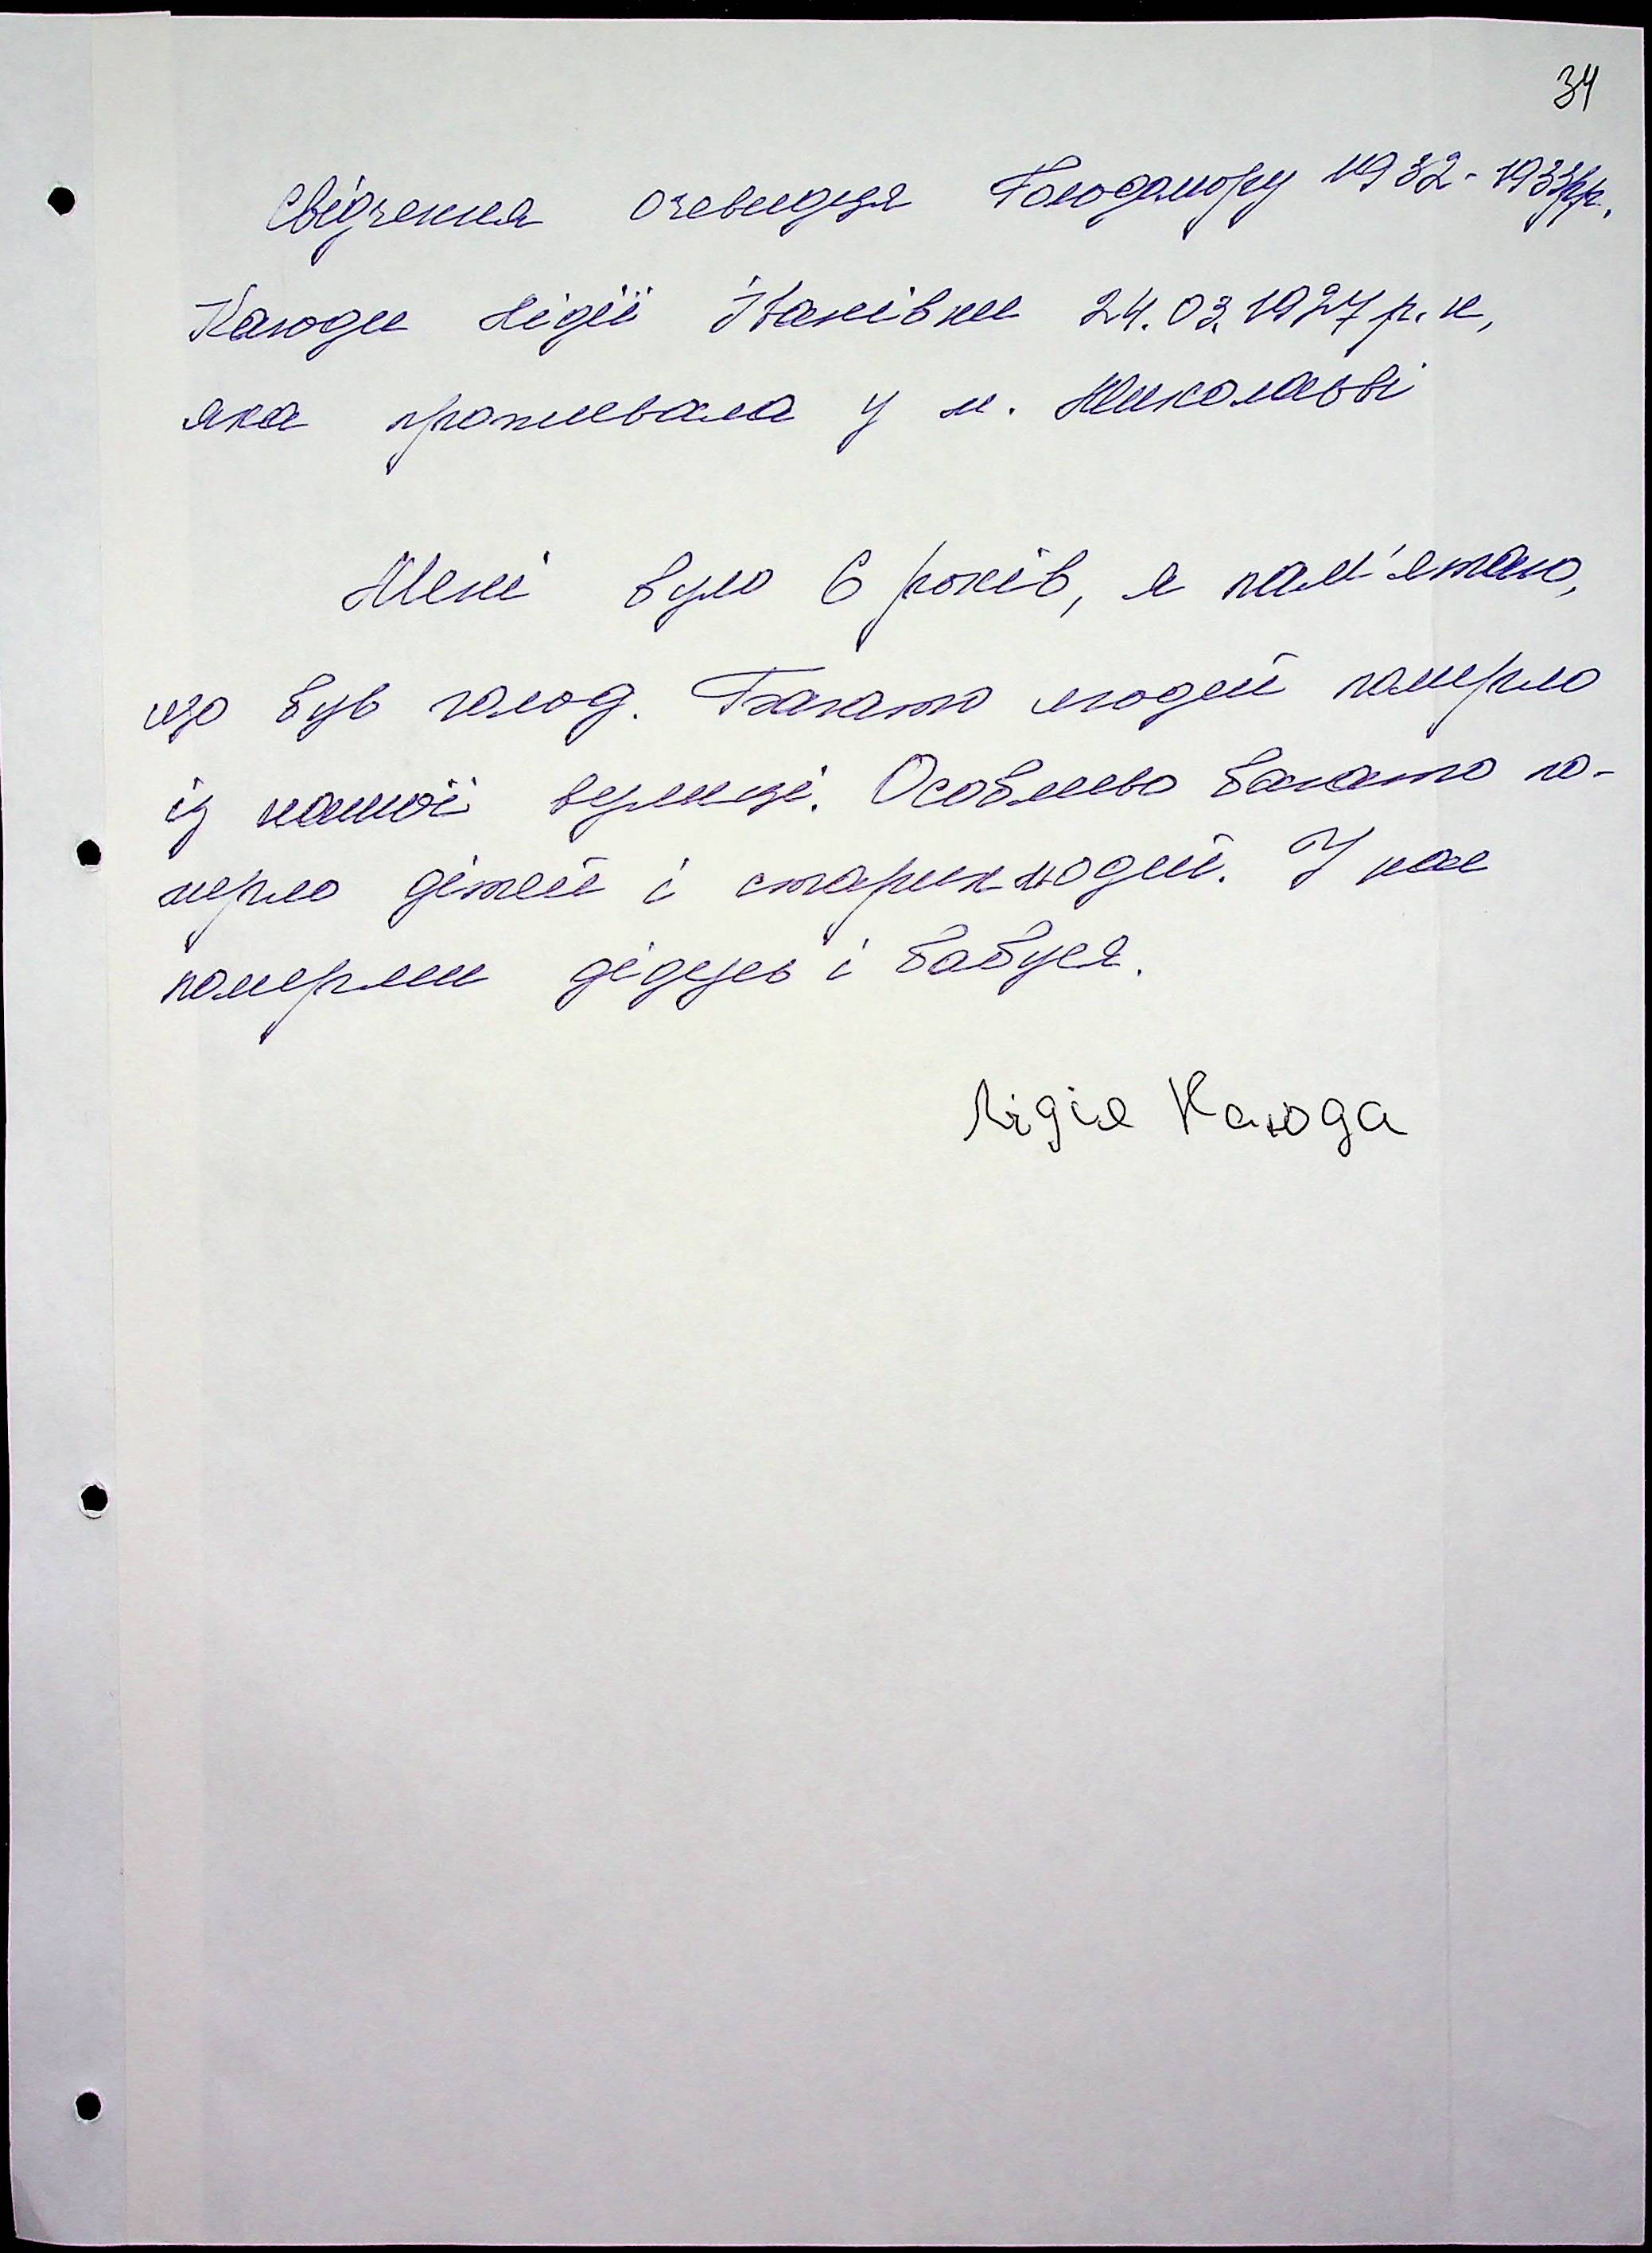 34
Свідчення очевидця Голодомору 1932-1933рр.
Каюди Лідії Іванівни 24.03.1927 р.н,
яка проживала у м. Миколаєві
Мені було 6 років, я пам'ятаю,
що був голод. Багато людей померло
із нашої вулиці. Особливо багато по-
мерло дітей і старих людей. У нас
померли дідусь і бабуся.
Лідія Каюда